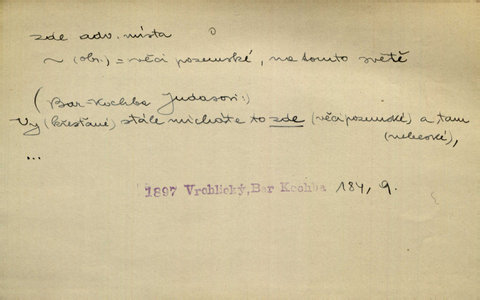 zde adv. místa
~ (obr.) = věci pozemské, na tomto světě
(Bar-Kochba Judasovi:)
Vy (křesťané) stále mícháte to zde (věci pozemské) a tam
(nebeské),
...
1897 Vrchlický, Bar Kochba 184, 9.